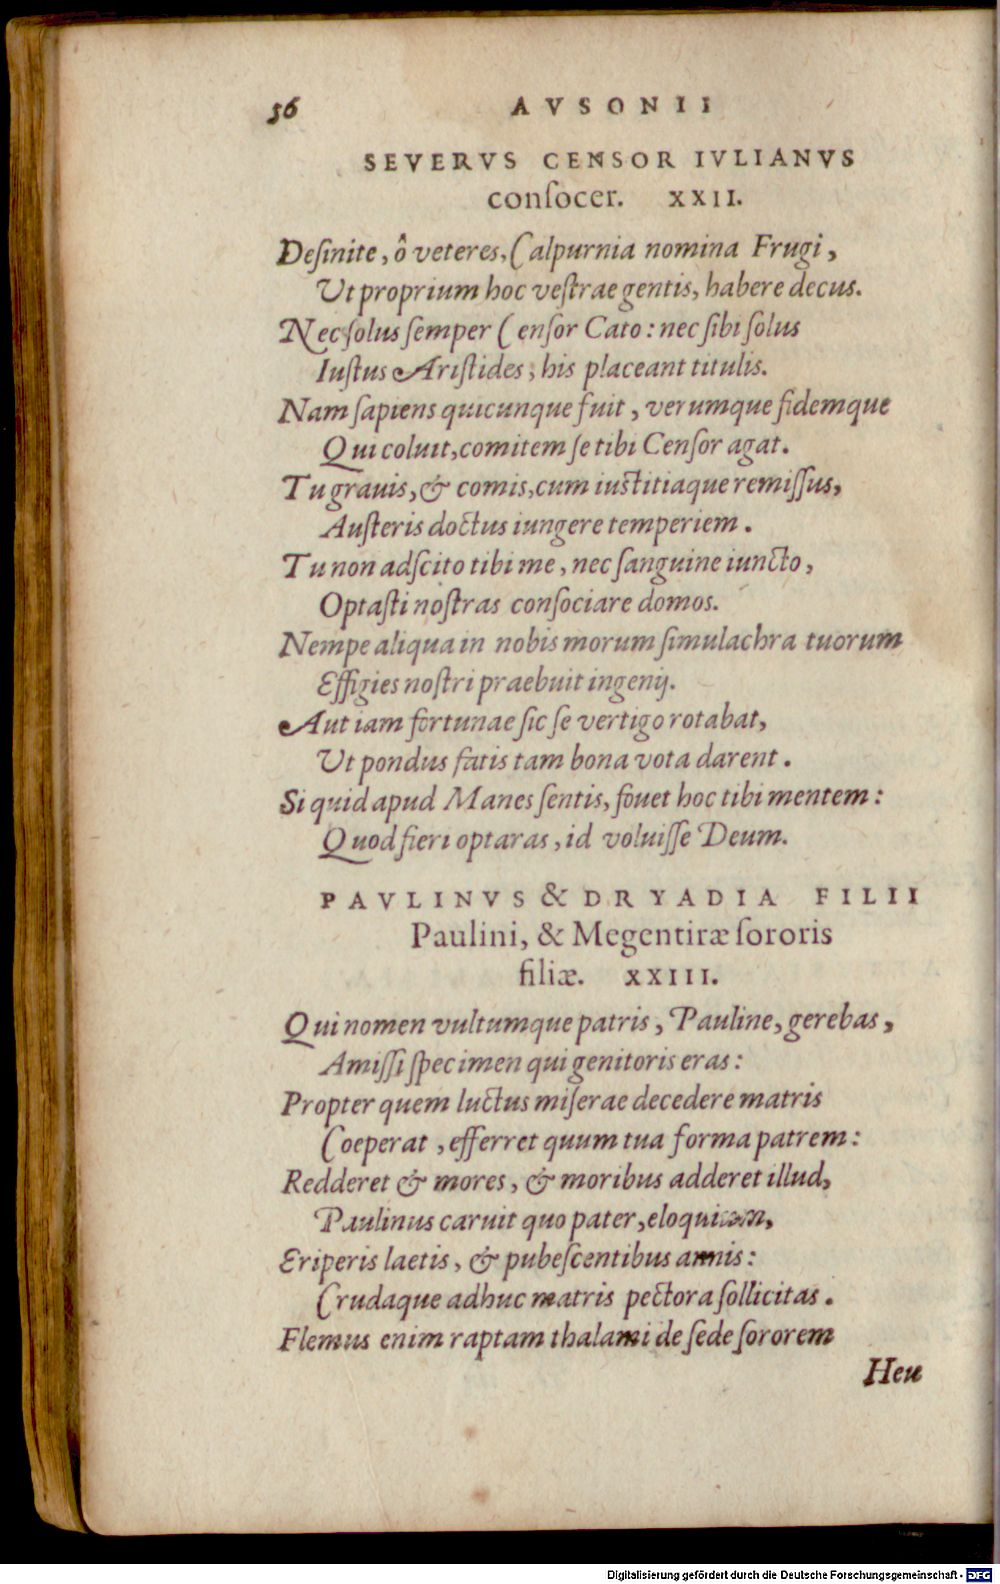 56 AVSONII
SEVERVS CENSOR IVLIANVS
conſocer. XXII.
Deſinite, ô veteres, Calpurnia nomina Frugi,
Ut proprium hoc veſtrae gentis, habere decus.
Nec ſolus ſemper Cenſor Cato: nec ſibi ſolus
Iuſtus Ariſtides, his placeant titulis.
Nam ſapiens quicunque fuit, verumque fidemque
Qui coluit, comitem ſe tibi Cenſor agat.
Tu grauis, & comis, cum iustitiaque remiſſus,
Auſteris doctus iungere temperiem.
Tu non adſcito tibi me, nec ſanguine iuncto,
Optaſti noſtras conſociare domos.
Nempe aliqua in nobis morum ſimulachra tuorum
Effigies noſtri praebuit ingenij.
Aut iam fortunae ſic ſe vertigo rotabat,
Ut pondus fatis tam bona vota darent.
Si quid apud Manes ſentis, fouet hoc tibi mentem:
Quod fieri optaras, id voluiſſe Deum.
PAVLINVS & DRYADIA FILII
Paulini, & Megentiræ ſororis
filiæ. XXIII.
Qui nomen vultumque patris, Pauline, gerebas,
Amiſſi ſpecimen qui genitoris eras:
Propter quem luctus miſerae decedere matris
Coeperat, efferret quum tua forma patrem:
Redderet & mores, & moribus adderet illud,
Paulinus caruit quo pater, eloquium,
Eriperis laetis, & pubeſcentibus annis:
Crudaque adhuc matris pectora ſollicitas.
Flemus enim raptam thalami de ſede ſororem
Heu
Digitalisierung gefördert durch die Deutsche Forschungsgemeinschaft - DFG